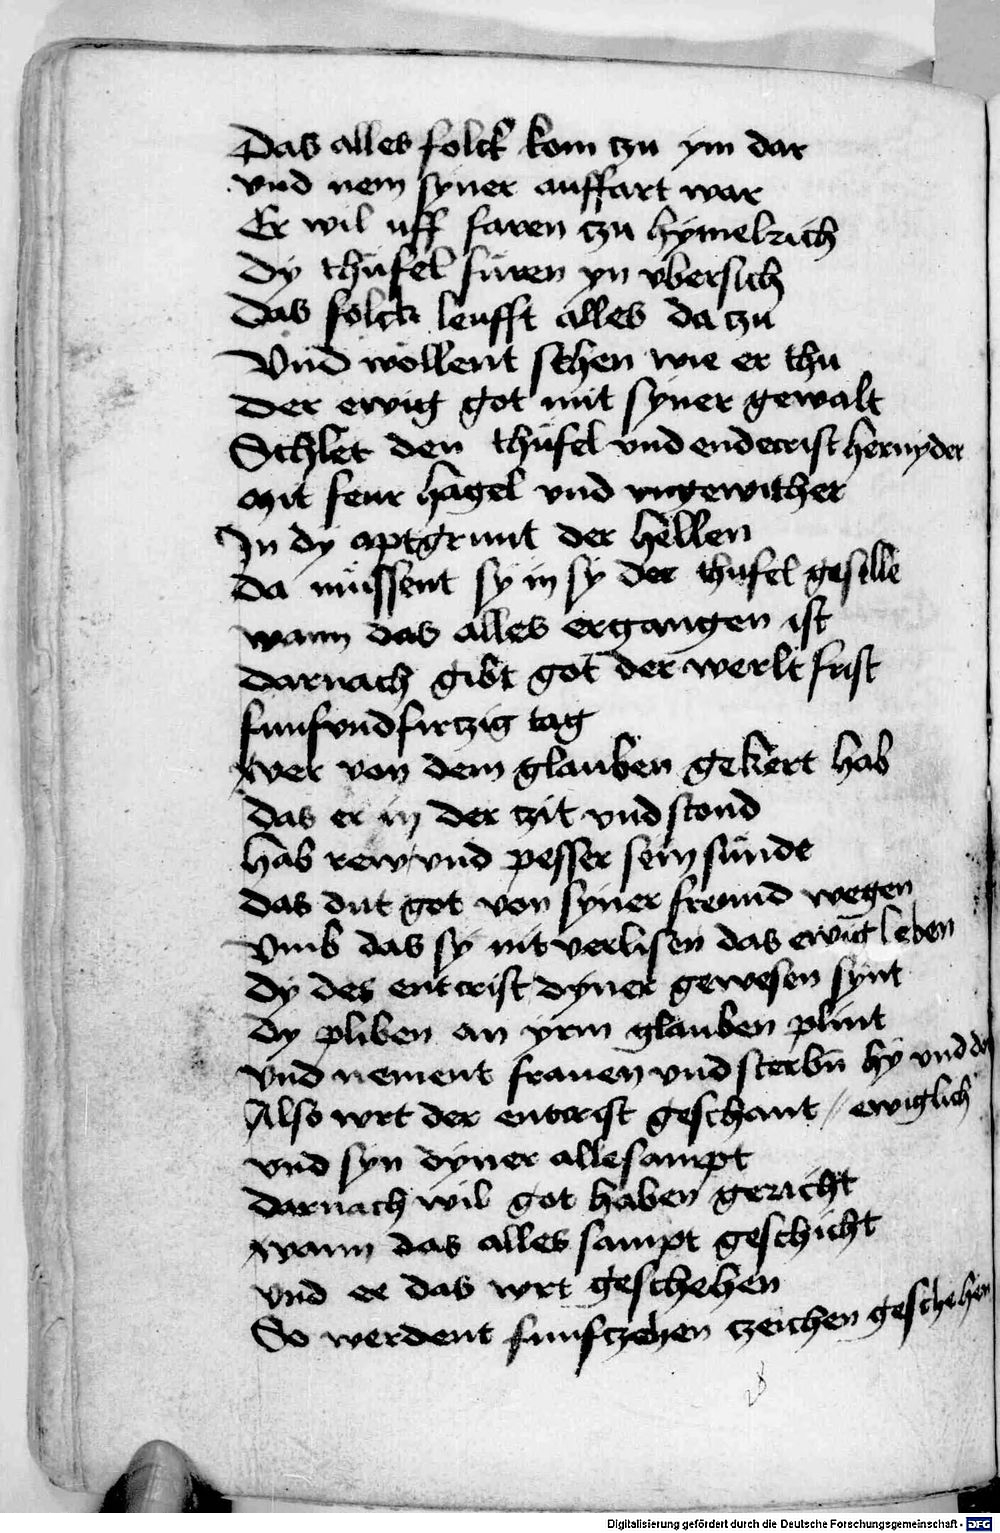 Das alles folck kom tzu ym dar
vnd nem syner auffart war
Er wil uff faren tzu hymelrich
Dy thüfel füren yn vbersich
Das folck leufft alles da tzu
Vnd wöllent sehen wie er thu
Der ewig got mit syner gewalt
Schlet den thüfel vnd endecrist hernyder
mit feur hagel vnd vngewither
In dy aptgrunt der hellen
da müssent sy in sy der thufel geselle
wann das alles ergangen ist
darnach gibt got der werlt frist
funfvndfirtzig tag
wer von dem glauben gekert hab
das er in der tzit vnd stond
hab rew vnd pesser sein sünde
das dut got von syner freund wegen
Vmb das sy nit verlisen das ewig leben
Dy des entcrist dyner gewesen synt
dy pliben an yrm glauben plint
vnd nement frauen vnd sterbn̄ hy vnd
Also wrt der entcrist geschant // ewiglich
vnd syn dyner alle sampt
darnach wil got haben gericht
wann das alles sampt geschicht
vnd ee das wrt geschehen
So werdent funftzehen tzeichen geschehen
28
Digitalisierung gefördert durch die Deutsche Forschungsgemeinschaft - DFG